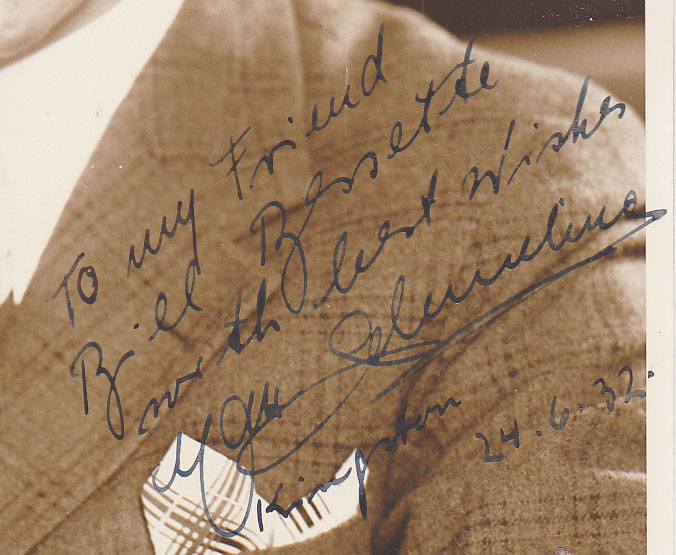 To my Friend
Bill Bessette
with best wishes
Max Schmeling
Kingston 24.6.32.